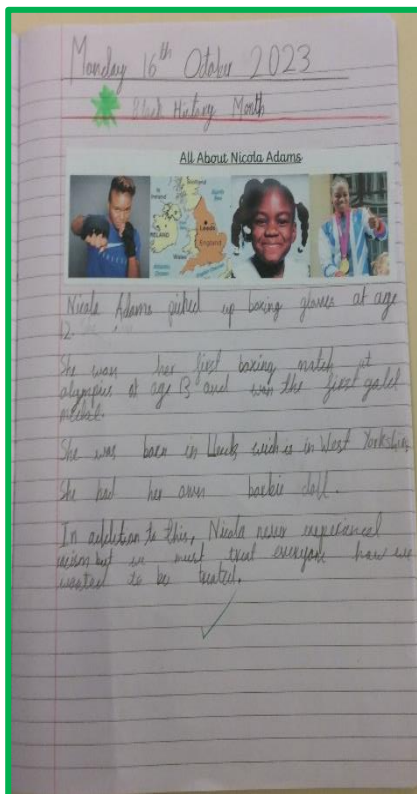 Monday 16th October 2023
Black History Month
All About Nicola Adams
Scotland
Ireland
IRELAND
Leeds
England
Wales
Nicola Adams picked up boxing gloves at age
12.
She won her first boxing match at
olympics at age 13 and won the first gold
medal.
She was born in Leeds wich is in West Yorkshire
She had her own barbie doll.
In addition to this, Nicola never experienced
racism but we must treat everyone how we
wanted to be treated.